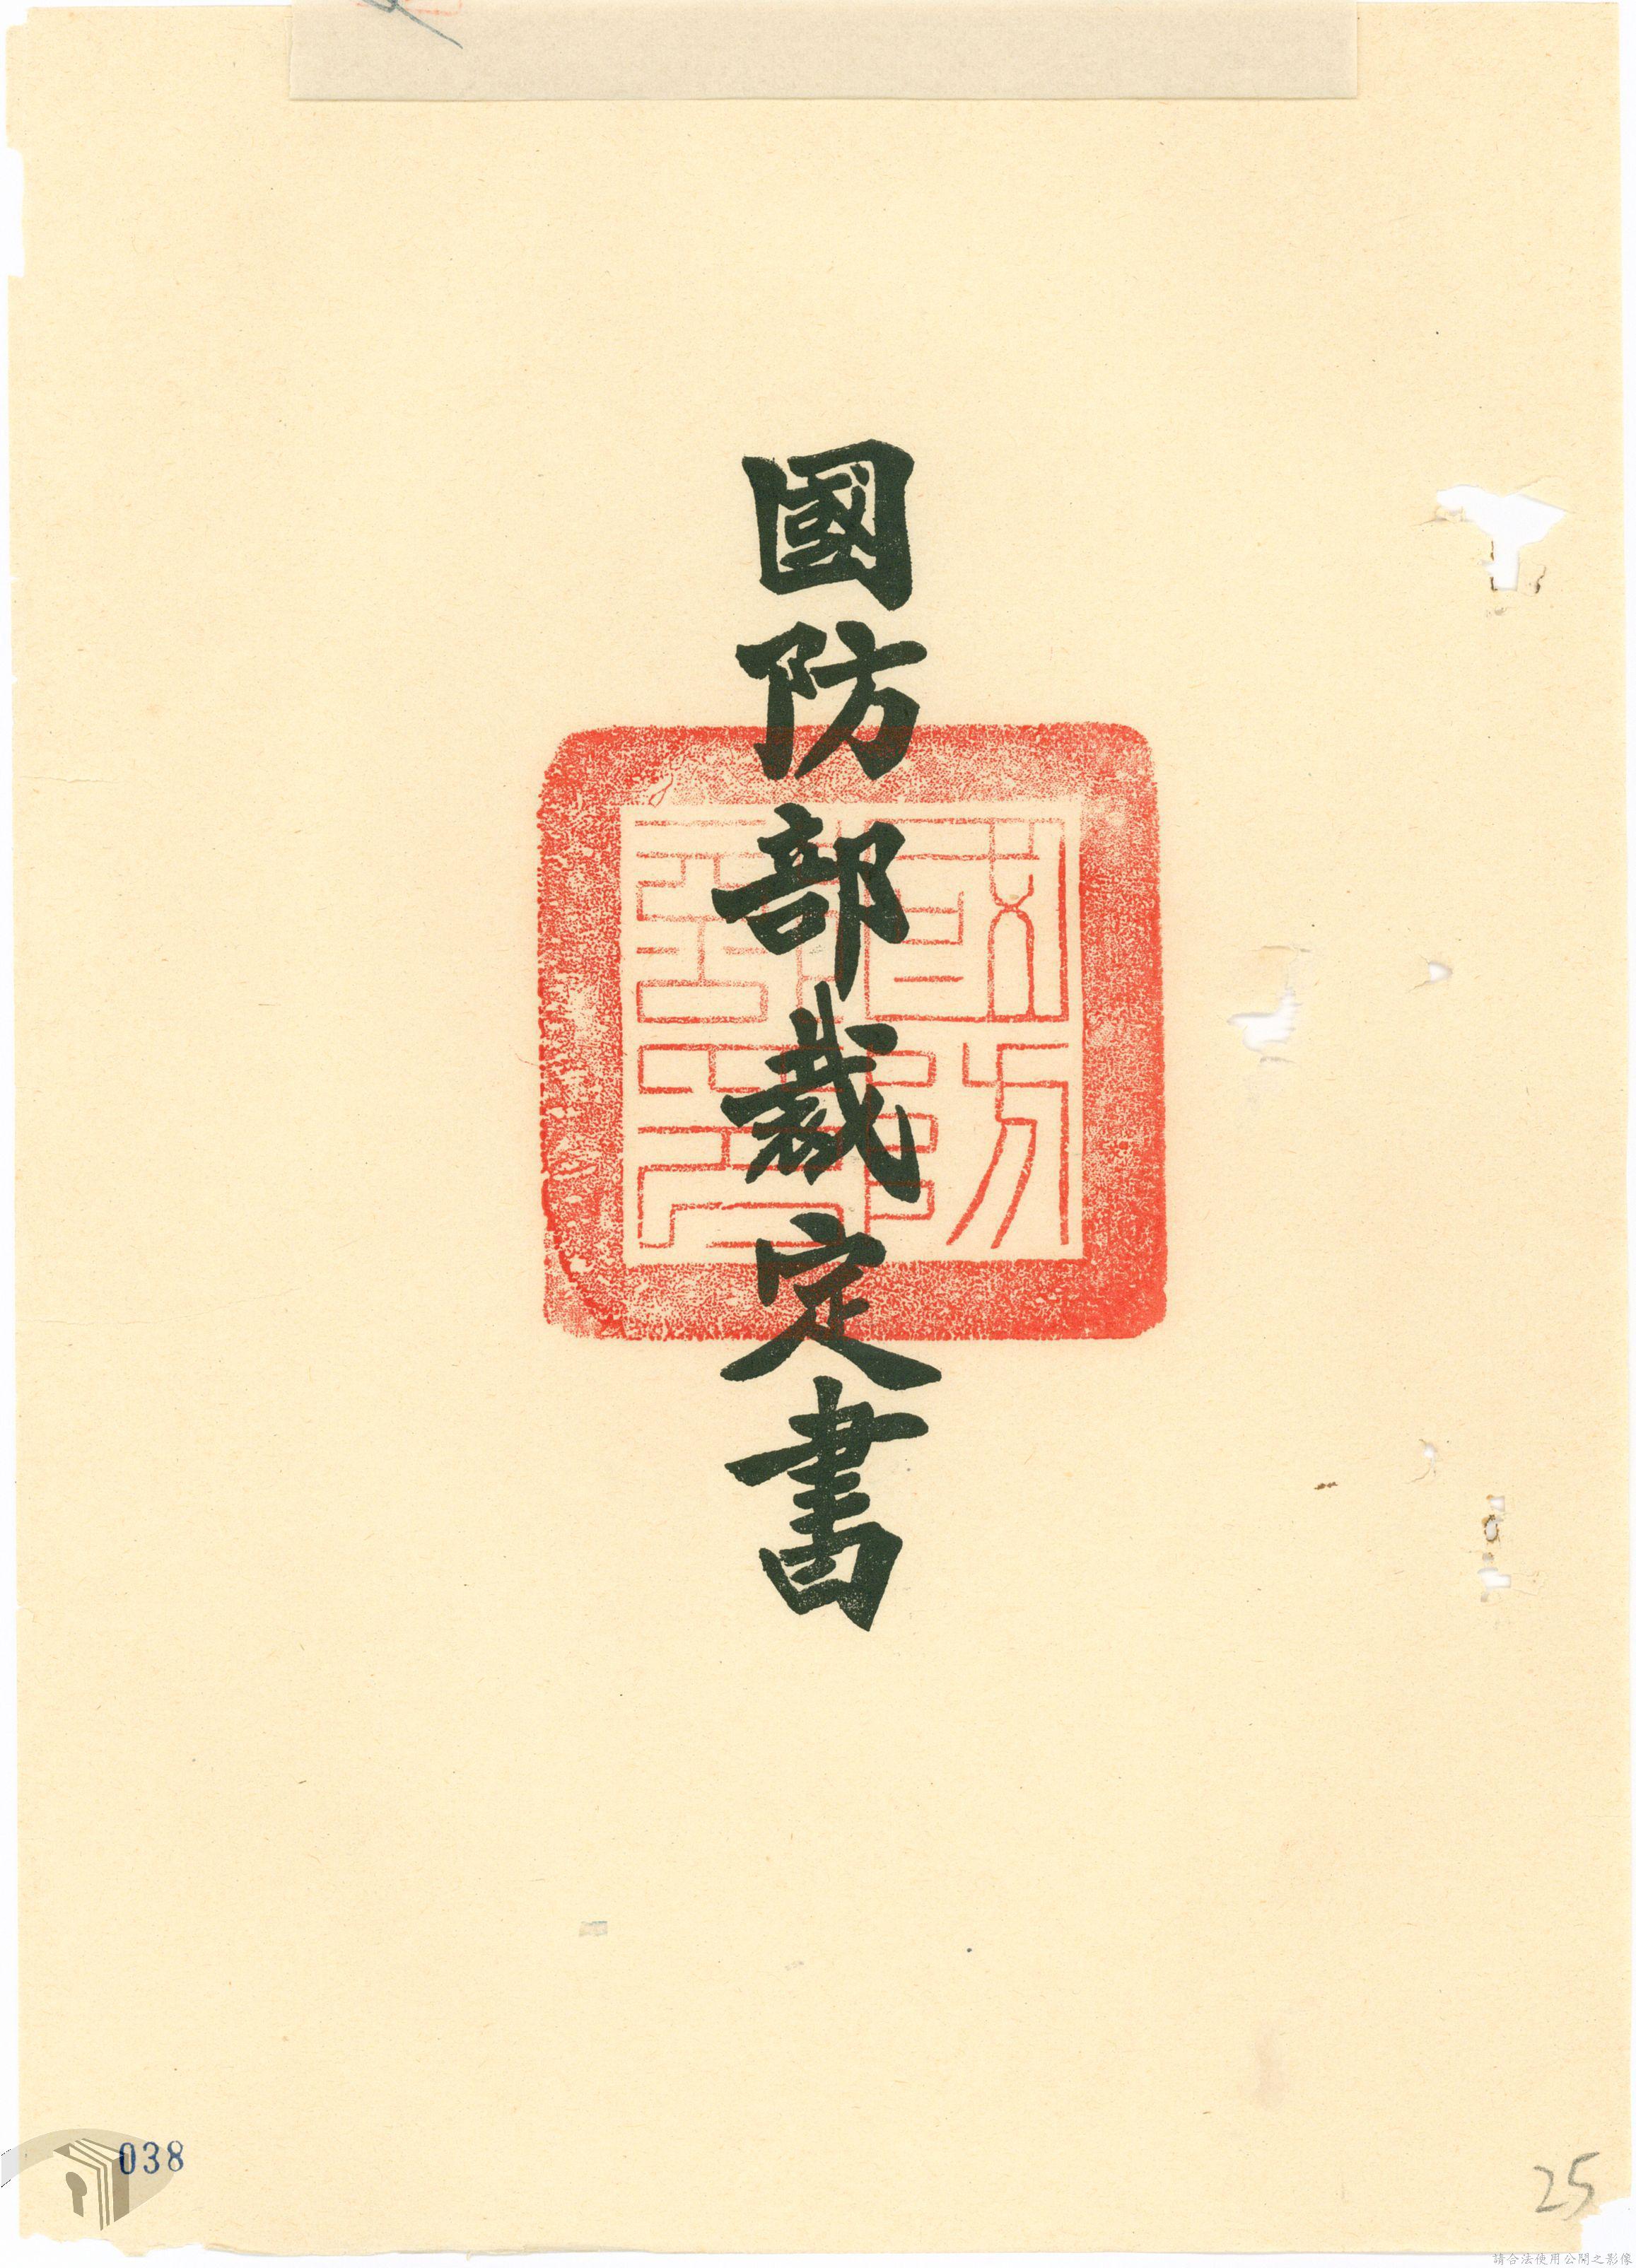 國防部裁定書
038
25
請合法使用公開之影像